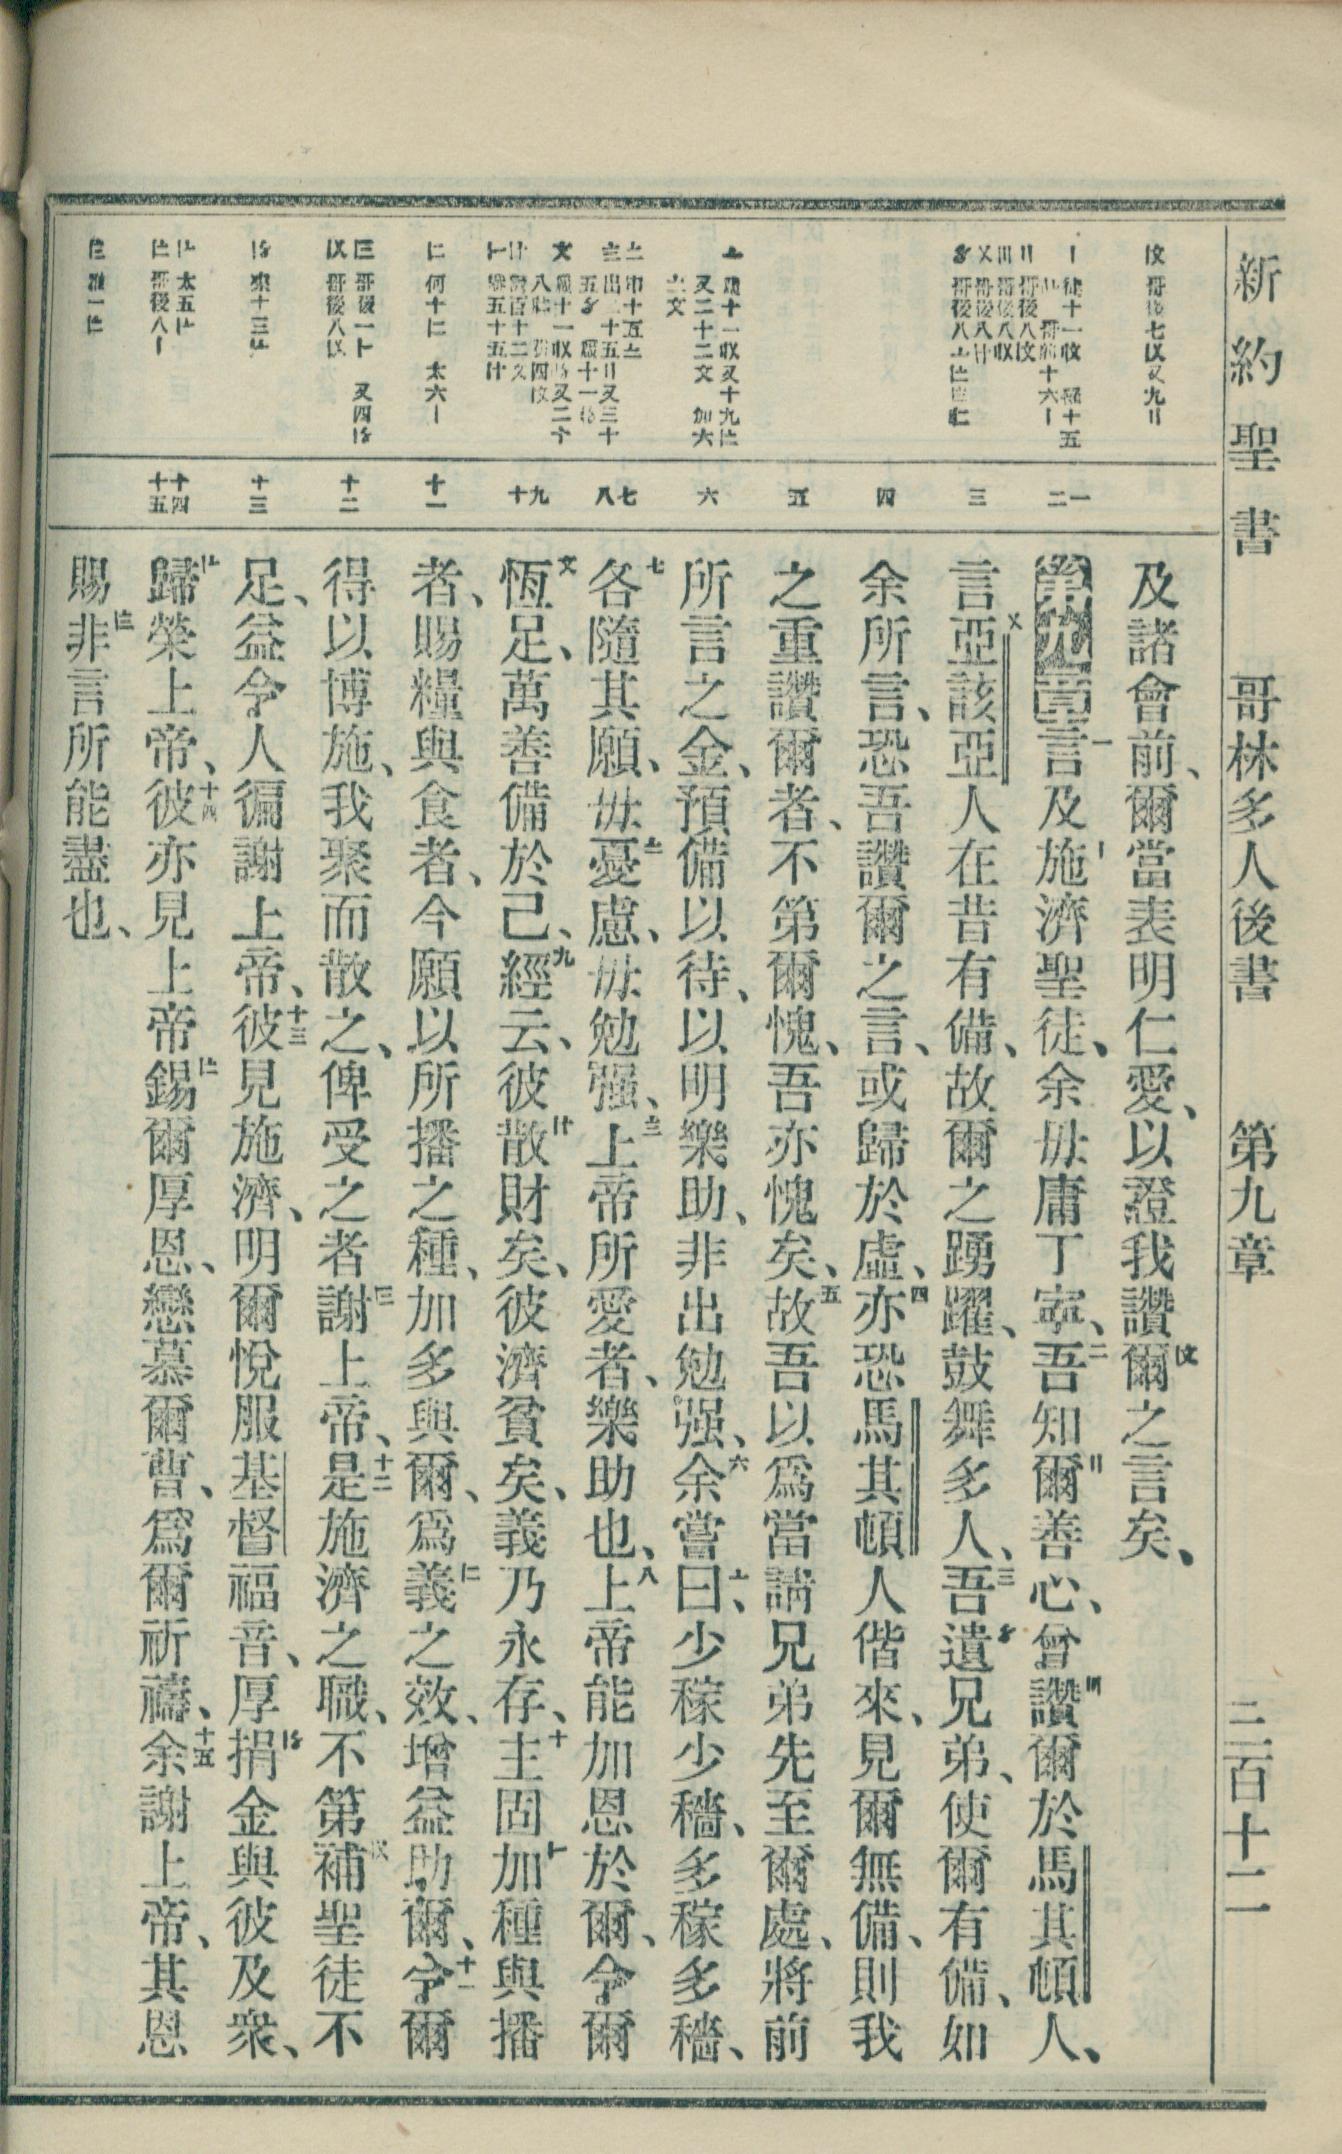 新約聖書 哥林多人後書 第九章 三百十二
及諸會前、爾當表明仁愛、以證我讚爾之言矣、
第九章一言及施濟聖徒、余毋庸丁寧、二吾知爾善心、曾讚爾於馬其頓人、
言亞該亞人在昔有備、故爾之踴躍、鼓舞多人、三吾遣兄弟、使爾有備、如
余所言、恐吾讚爾之言、或歸於虛、四亦恐馬其頓人偕來、見爾無備、則我
之重讚爾者、不第爾愧、吾亦愧矣、五故吾以爲當請兄弟先至爾處、將前
所言之金、預備以待、以明樂助、非出勉强、六余嘗曰、少稼少穡、多稼多穡、
七各隨其願、毋憂慮、毋勉强、上帝所愛者、樂助也、八上帝能加恩於爾、令爾
恆足、萬善備於己、九經云、彼散財矣、彼濟貧矣、義乃永存、十主固加種與播
者、賜糧與食者、今願以所播之種、加多與爾、爲義之效、增益助爾、十一令爾
得以博施、我聚而散之、俾受之者謝上帝、十二是施濟之職、不第補聖徒不
足、益令人徧謝上帝、十三彼見施濟、明爾悅服基督福音、厚捐金與彼及衆、
歸榮上帝、十四彼亦見上帝錫爾厚恩、戀慕爾曹、爲爾祈禱、十五余謝上帝、其恩
賜非言所能盡也、
一
二
三
四
五
六
七
八
九
十
十一
十二
十三
十四
十五